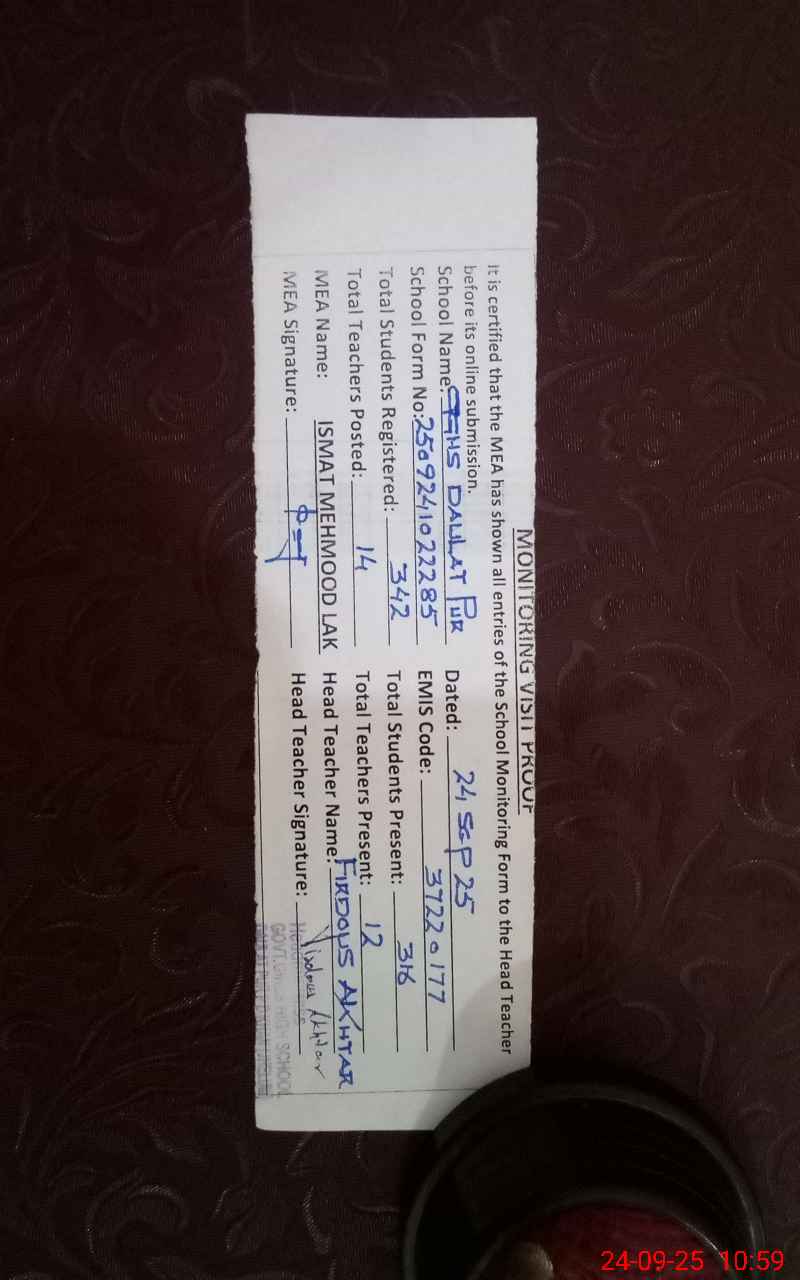 MONITORING VISIT PROOF
It is certified that the MEA has shown all entries of the School Monitoring Form to the Head Teacher
before its online submission.
School Name: GGHS DAULAT PUR Dated: 24 Sep 25
School Form No: 250924102285 EMIS Code: 37220177
Total Students Registered: 342 Total Students Present: 316
Total Teachers Posted: 14 Total Teachers Present: 12
MEA Name: ISMAT MEHMOOD LAK Head Teacher Name: FIRDOUS AKHTAR
MEA Signature: Head Teacher Signature: Firdous Akhtar
GOVT. HIGH SCHOOL
24-09-25 10:59